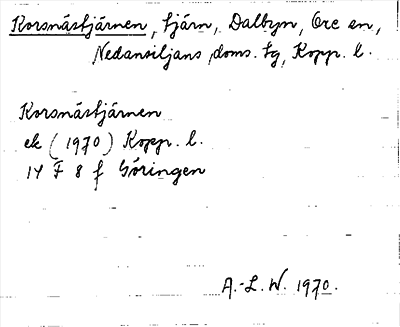 Korsnästjärnen, tjärn, Dalbyn, Ore sn,
Nedansiljans doms. tg, Kopp. l.
Korsnästjärnen
ek (1970) Kopp. l.
14 F 8 f Göringen
A.-L. W. 1970.